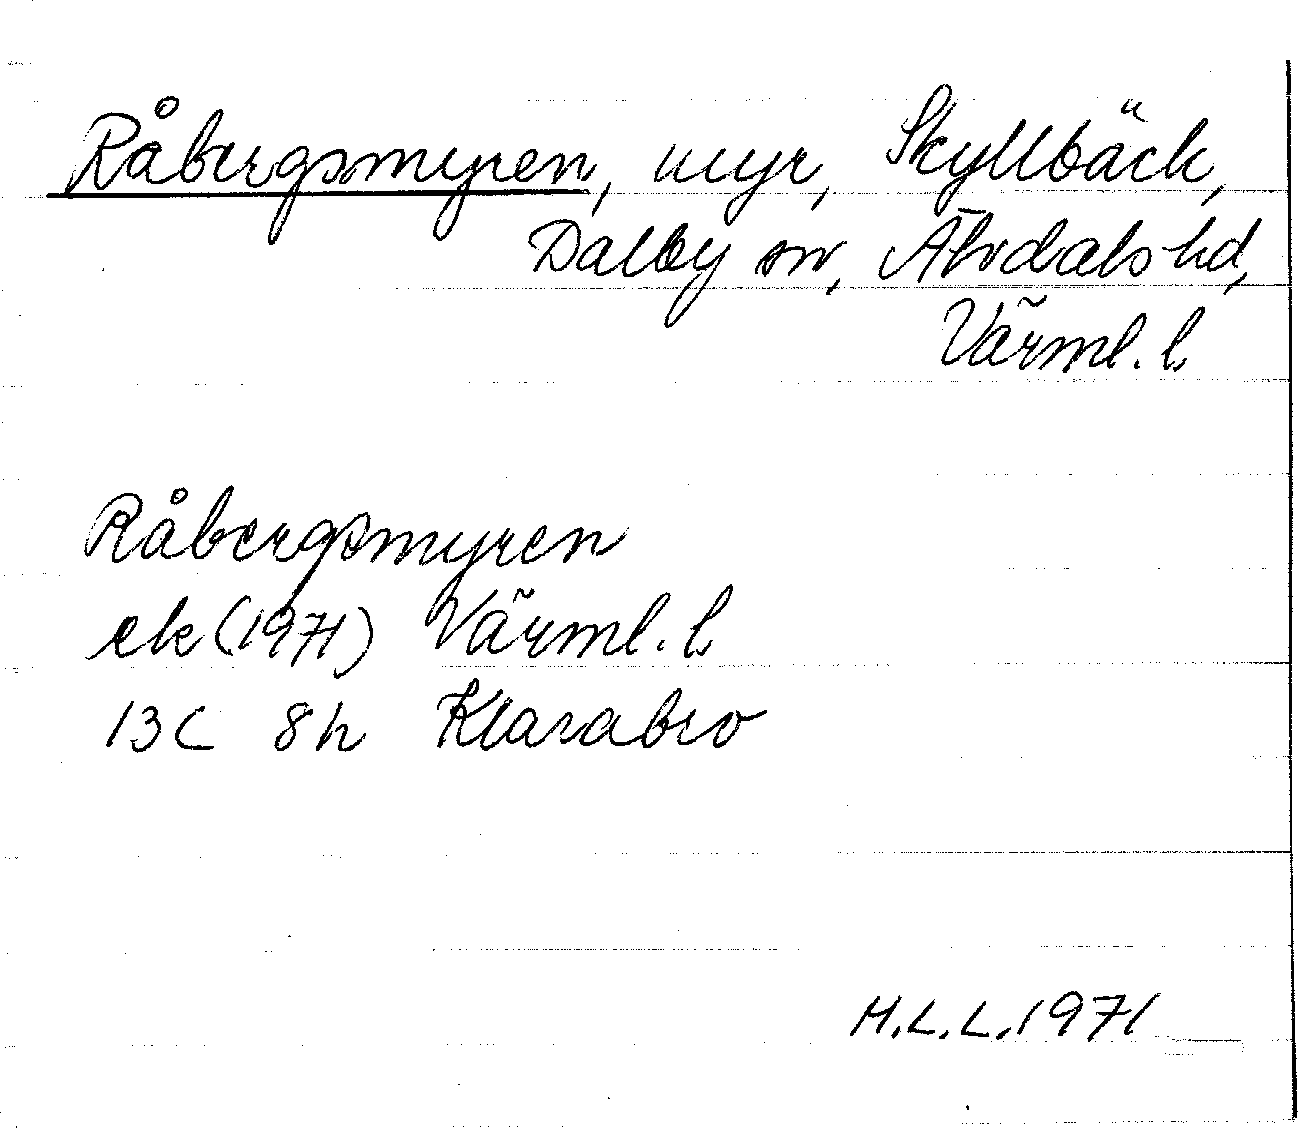 Råbergsmyren, myr, Skyllbäck,
Dalby sn, Älvdals hd,
Värml. l.
Råbergsmyren
ek (1971) Värml. l.
13C 8h Klarabro
H.L.L. 1971